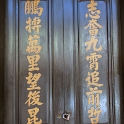 志奮九霄追前哲
鵬摶萬里望後昆